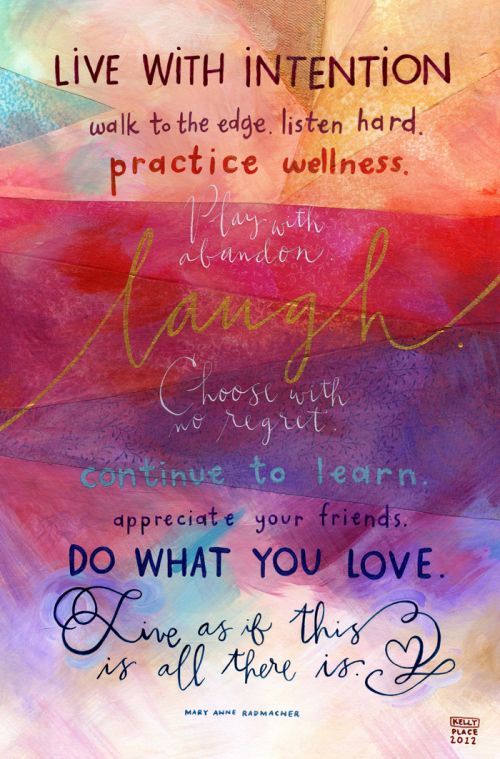 LiVE WiTH iNTENTiON
walk to the edge. listen hard.
practice wellness.
Play with
abandon.
laugh.
Choose with
no regret.
continue to learn.
appreciate your friends.
DO WHAT YOU LOVE.
Live as if this
is all there is.
MARY ANNE RADMACHER
KELLY
PLACE
2012